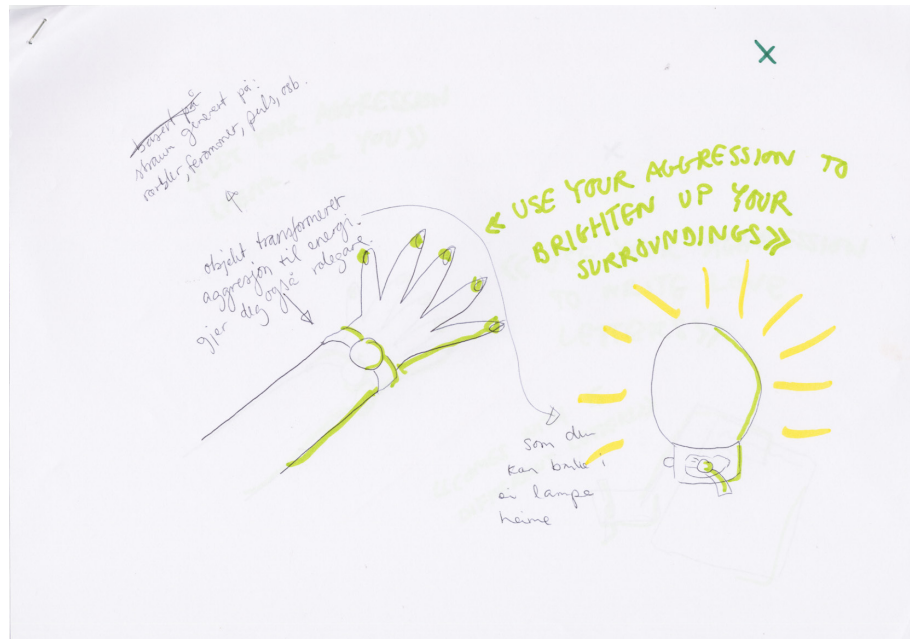 basert på
straum generert på:
rørsler, feromoner, puls, osb.
objekt transformerer
aggresjon til energi.
gjer deg også rolegare.
« USE YOUR AGGRESSION TO
BRIGHTEN UP YOUR
SURROUNDINGS»
som den
kan bruke i
ei lampe
heime